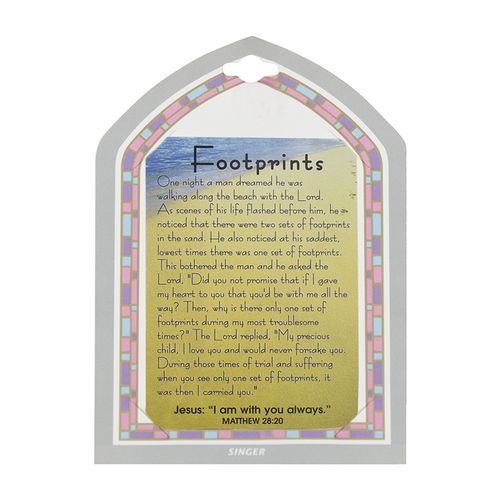 Footprints
One night a man dreamed he was
walking along the beach with the Lord.
As scenes of his life flashed before him, he
noticed that there were two sets of footprints
in the sand. He also noticed at his saddest,
lowest times there was one set of footprints.
This bothered the man and he asked the
Lord, "Did you not promise that if I gave
my heart to you that you'd be with me all the
way? Then, why is there only one set of
footprints during my most troublesome
times?" The Lord replied, "My precious
child, I love you and would never forsake you.
During those times of trial and suffering
when you see only one set of footprints, it
was then I carried you."
Jesus: “I am with you always.”
MATTHEW 28:20
SINGER